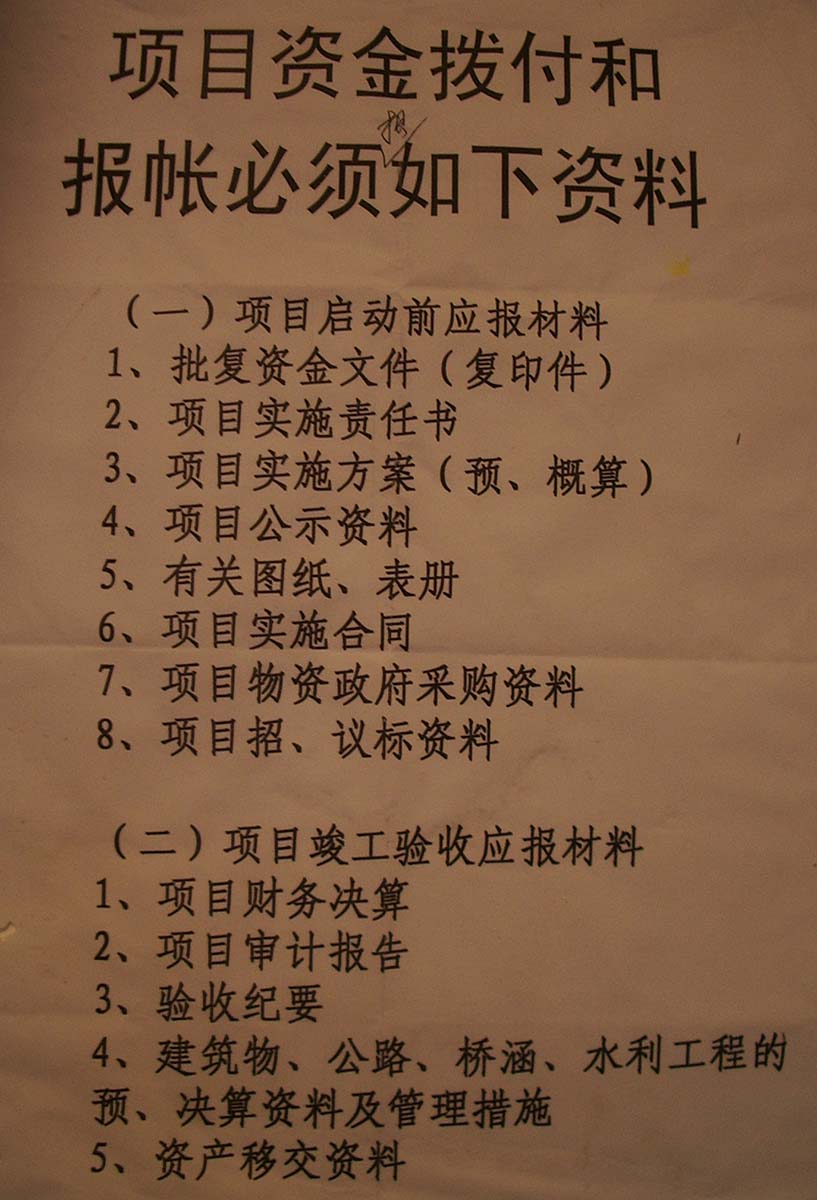 项目资金拨付和
报帐必须如下资料
（一）项目启动前应报材料
1、批复资金文件（复印件）
2、项目实施责任书
3、项目实施方案（预、概算）
4、项目公示资料
5、有关图纸、表册
6、项目实施合同
7、项目物资政府采购资料
8、项目招、议标资料
（二）项目竣工验收应报材料
1、项目财务决算
2、项目审计报告
3、验收纪要
4、建筑物、公路、桥涵、水利工程的
预、决算资料及管理措施
5、资产移交资料